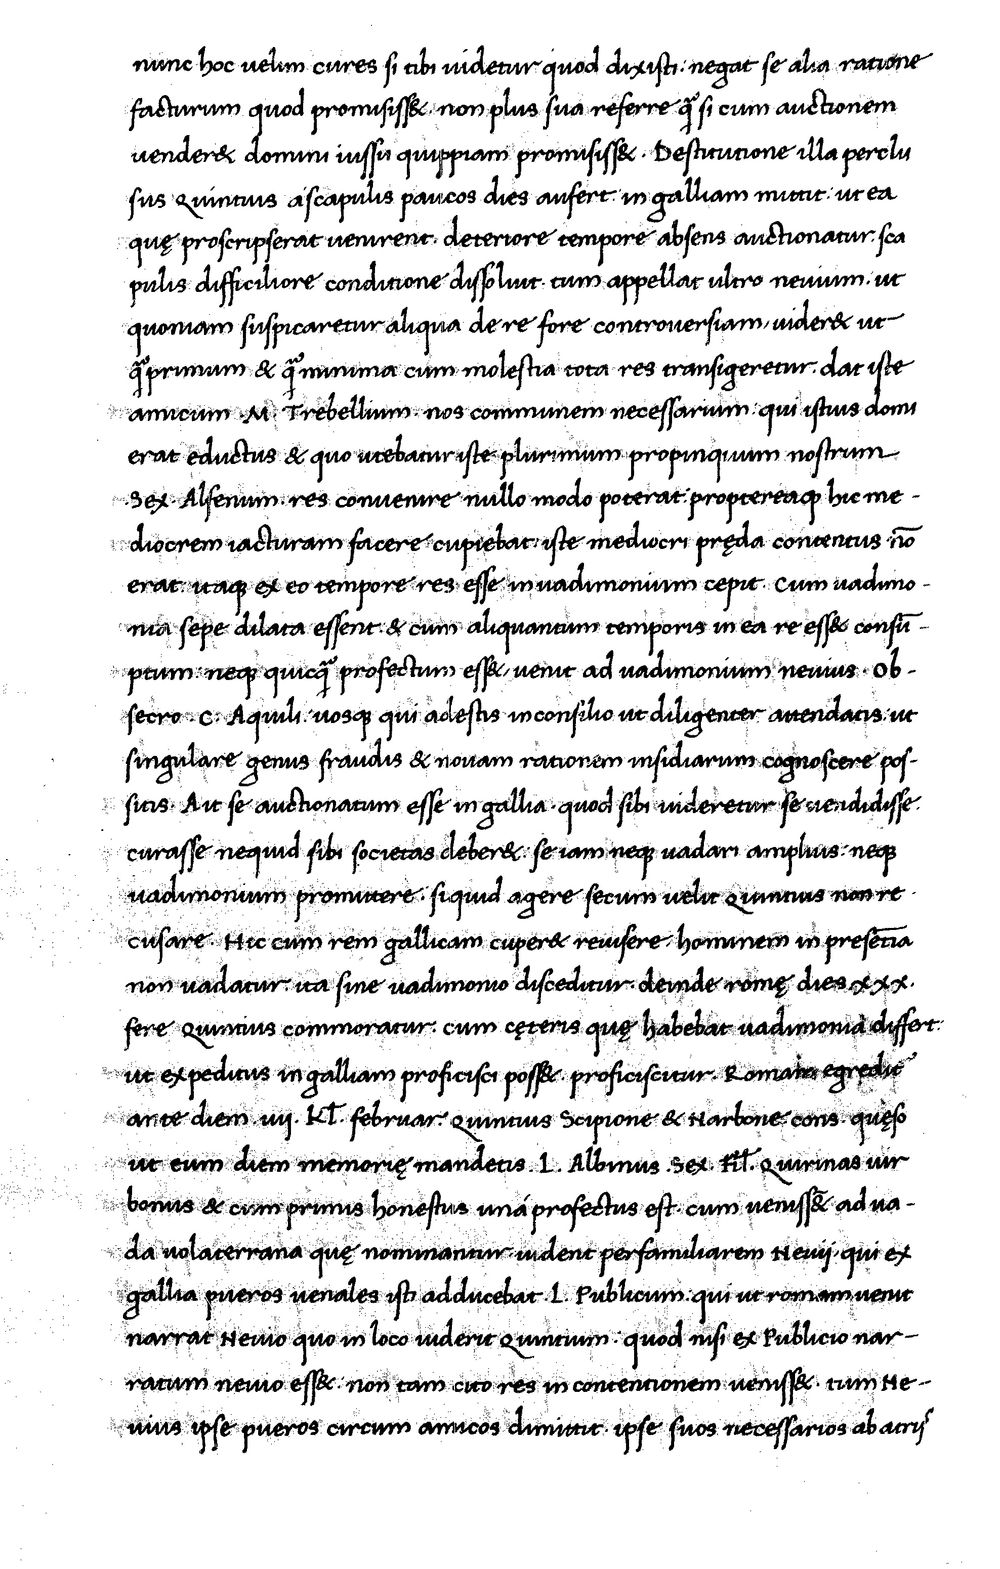 nunc hoc uelim cures si tibi uidetur quod dixisti. negat se alia ratione
facturum quod promisiss&. non plus sua referre q̃ si cum auctionem
uender& domini iussu quippiam promisiss&. Destitutione illa perclu
sus Quintius ascapulis paucos dies aufert. in galliam mittit. ut ea
quę proscripserat uenirent. deteriore tempore absens auctionatur. sca
pulis difficiliore conditione dissoluit. tum appellat ultro neuium. ut
quoniam suspicaretur aliqua de re fore controuersiam, uider& ut
q̃primum & q̃minima cum molestia tota res transigeretur. dat iste
amicum .M. Trebellium. nos communem necessarium. qui istius domi
erat eductus & quo utebatur iste plurimum propinquum nostrum
Sex. Alfenum. res conuenire nullo modo poterat propterea qꝫ hic me-
diocrem iacturam facere cupiebat. iste mediocri pręda contentus nō
erat. itaqꝫ ex eo tempore res esse in uadimonium cepit. Cum uadimo-
nia sepe dilata essent. & cum aliquantum temporis in ea re ess& consū-
ptum. neqꝫ quicq̃ profectum ess&, uenit ad uadimonium neuius. Ob-
secro .C. Aquili. uosqꝫ qui adestis inconsilio ut diligenter attendatis. ut
singulare genus fraudis & nouam rationem insidiarum cognoscere pos-
sitis. Ait se auctionatum esse in gallia. quod sibi uideretur se uendidisse.
curasse nequid sibi societas deber&. se iam neqꝫ uadari amplius. neqꝫ
uadimonium promittere. siquid agere secum uelit Quintius non re
cusare. Hic cum rem gallicam cuper& reuisere. hominem in presētia
non uadatur. ita sine uadimonio disceditur. deinde romę dies xxx.
fere Quintius commoratur. cum cęteris quę habebat uadimonia differt.
ut expeditus in galliam proficisci poss&. proficiscitur. Roma egredit̃
ante diem iiij. Kl̃. februar. Quintius Scipione & Narbone cons. quęso
ut eum diem memorię mandetis. L. Albinus Sex. fil̃. Quirinas uir
bonus & cum primis honestus unà profectus est. cum ueniss& ad ua-
da uolaterrana quę nominantur uident perfamiliarem Neuij. qui ex
gallia pueros uenales isti adducebat .L. Publicium. qui ut romam uenit
narrat Neuio quo in loco uiderit Quintium. quod nisi ex Publicio nar-
ratum neuio ess&. non tam cito res in contentionem ueniss&. tum Ne-
uius ipse pueros circum amicos dimittit. ipse suos necessarios ab atrijs